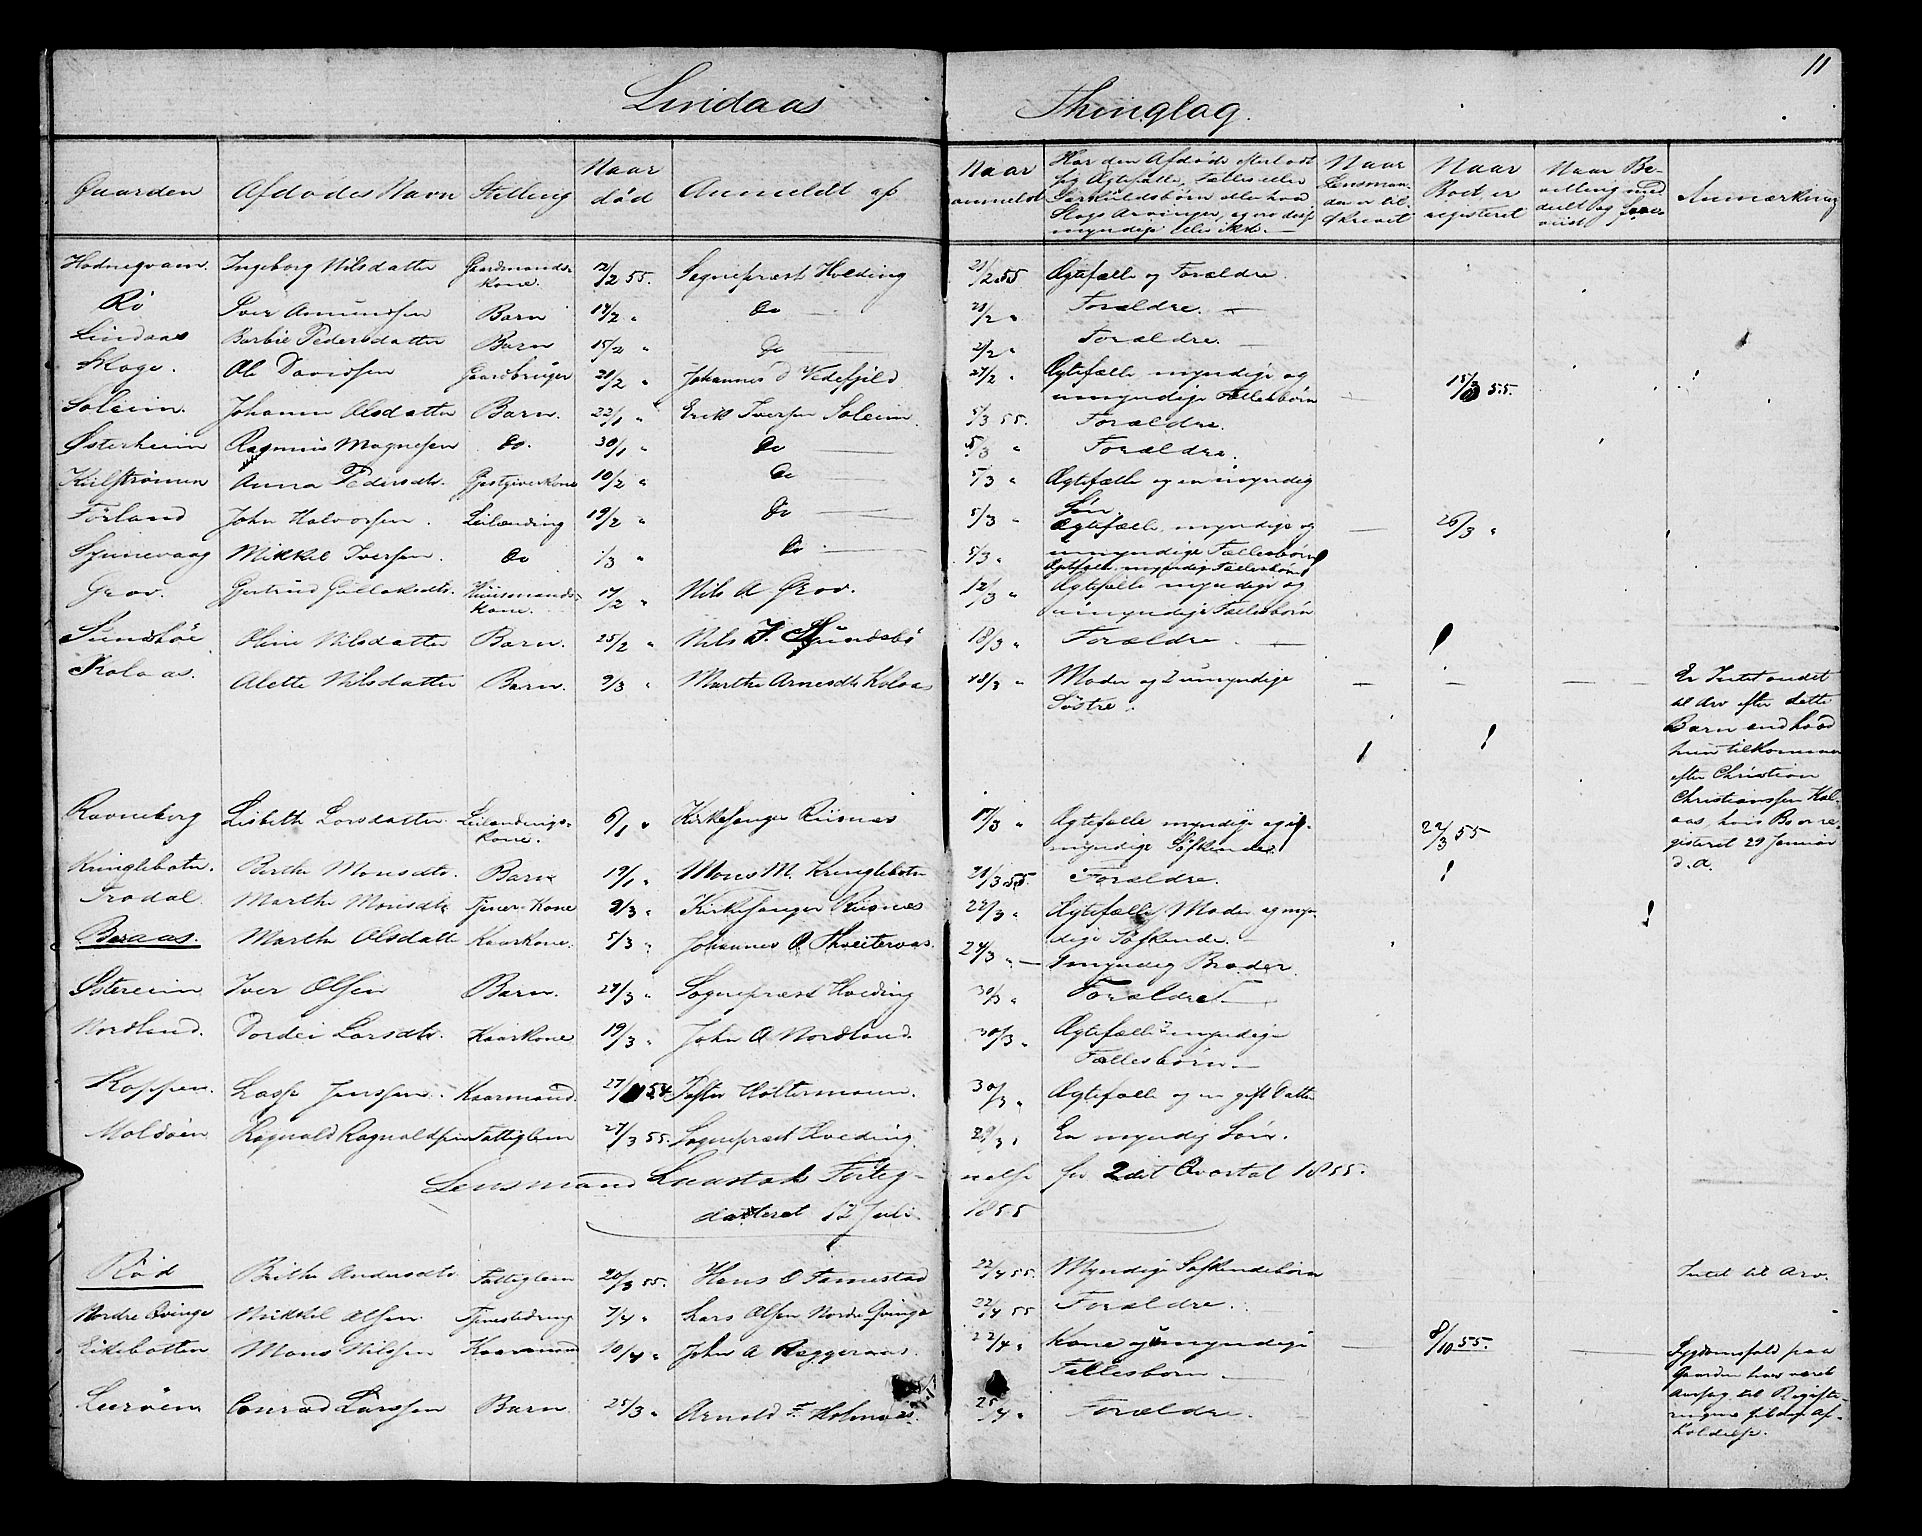 11
Lindaas Thinglag.
Gaarden Afdødes Navn Stilling Naar død Anmeldt af Naar anmeldt Har den Afdøde efterladt sig Ægtefælle, Fælles eller Særkuldsbørn eller hvad Slags Arvinger, og ere disse myndige eller ikke. Naar Lensmanden er tilskrevet Naar Boet er registeret Naar Bevilling meddeelt og foreviist Anmærkning
Hodneqvam. Ingeborg Nilsdatter Gaardmandskone. 12/2 55. Sognepræst Hveding 21/2 55 Ægtefælle og Forældre.
Rö Iver Amundsen Barn 14/2 Do 21/2 " Forældre. —
Lindaas Barbie Pedersdatter Barn 15/2 " Do — 21/2 " Forældre. —
Skage. Ole Davidsen Gaardbruger 21/2 " Johannes D Vedefjeld 27/2 " Ægtefælle myndige og umyndige Fællesbörn — 15/3 55.
Soleim. Johanne Olsdatter Barn. 22/1 " Erik Iversen Soleim. 5/3 55. Forældre.
Østerheim Rasmus Magnesen Do. 30/1 " Do — 5/3 " Forældre.
Kilströmen Anna Pedersdtr. Gjestgiverkone 10/2 " Do — 5/3 " Ægtefælle og en umyndig Sön.
Förland John Halvorsen. Leilænding 19/2 " Do — 5/3 " Ægtefælle, myndige og umyndige Fællesbörn — 26/3 "
Synnevaag Mikkel Iversen. Do 1/3 " Do — 5/3 " Ægtefælle, myndige Fællesbörn
Grov. Gjertrud Gullaksdtr. Huusmandskone. 17/2 " Nils A Grov. 12/3 " Ægtefælle myndige og umyndige Fællesbörn
Sundsböe Oline Nilsdatter Barn. 25/2 " Nils J. Sundsbö 18/3 " Forældre —
Kolaas. Alette Nilsdatter Barn. 9/3 " Marthe Arnesdtr Kolaas 18/3 " Moder og 2 umyndige Söstre. — — — — Er Intet andet til Arv efter dette Barn end hvad hun tilkommer efter Christian Christianssen Kolaas, hvis Bo er registeret 29 Januar d. A.
Ravneberg Lisbeth Larsdatter Leilændingskone. 6/1 " Kirkesanger Riisnæs 17/3 " Ægtefælle myndige og umyndige Söskende. 22/3 55
Kringlebotn. Berthe Monsdtr. Barn 19/1 " Mons M. Kringlebotn 21/3 55. Forældre.
Trodal. Marthe Monsdtr Tjener-Kone 9/3 " Kirkesanger Riisnæs 22/3 " Ægtefælle, Moder og myndige Söskende. —
Beraas. Marthe Olsdatter Kaarkone. 5/3 " Johannes O. Thveiteraas. 24/3 " — 1 myndig Broder.
Østereim Iver Olsen Barn. 27/3 " Sognepræst Hveding 30/3 " Forældre —
Nordlund. Dordei Larsdtr. Kaarkone 19/3 " John A Nordlund. 30/3 " Ægtefælle myndige Fællesbörn. —
Koppen. Lasse Jenssen. Kaarmand. 27/ 54 Toftin Holtermann. 30/3 " Ægtefælle og en gift Datter
Moldöen Rognald Rognaldsen Fattiglem 27/3 55. Sognepræst Hveding. 29/3 " En myndig Sön.
Lensmand Laastads Forteg- nelse for 2det Qvartal 1855.
dateret 12 Juli 1855
Röd Brithe Andersdtr Fattiglem 20/3 55. Hans O Fammestad 22/4 55. Myndige Söskendebörn Intet til Arv.
Nordre Qvinge Mikkel Olsen. Tjenestedreng 7/4 " Lars Olsen Nordre Qvinge 22/4 55 Forældre.
Eikebotten Mons Nilssen Kaarmand 10/4 " John A Reggeraas. 22/4 " Kone og umyndige Fællesbörn — — 8/10 55. — Sygdomsfald paa Gaarden har været Aarsag til Registeringens sildige Afholdelse.
Leeröen Conrad Larssen Barn. 25/3 " Arnold F. Holmaas. 25/4 " Forældre.